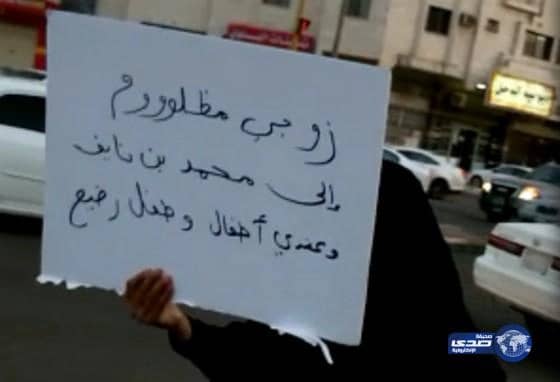 زوجي مظلوووم
وإلى محمد بن نايف
وعندي أطفال وطفل رضيع
صحيفة
صدى
الإلكترونية